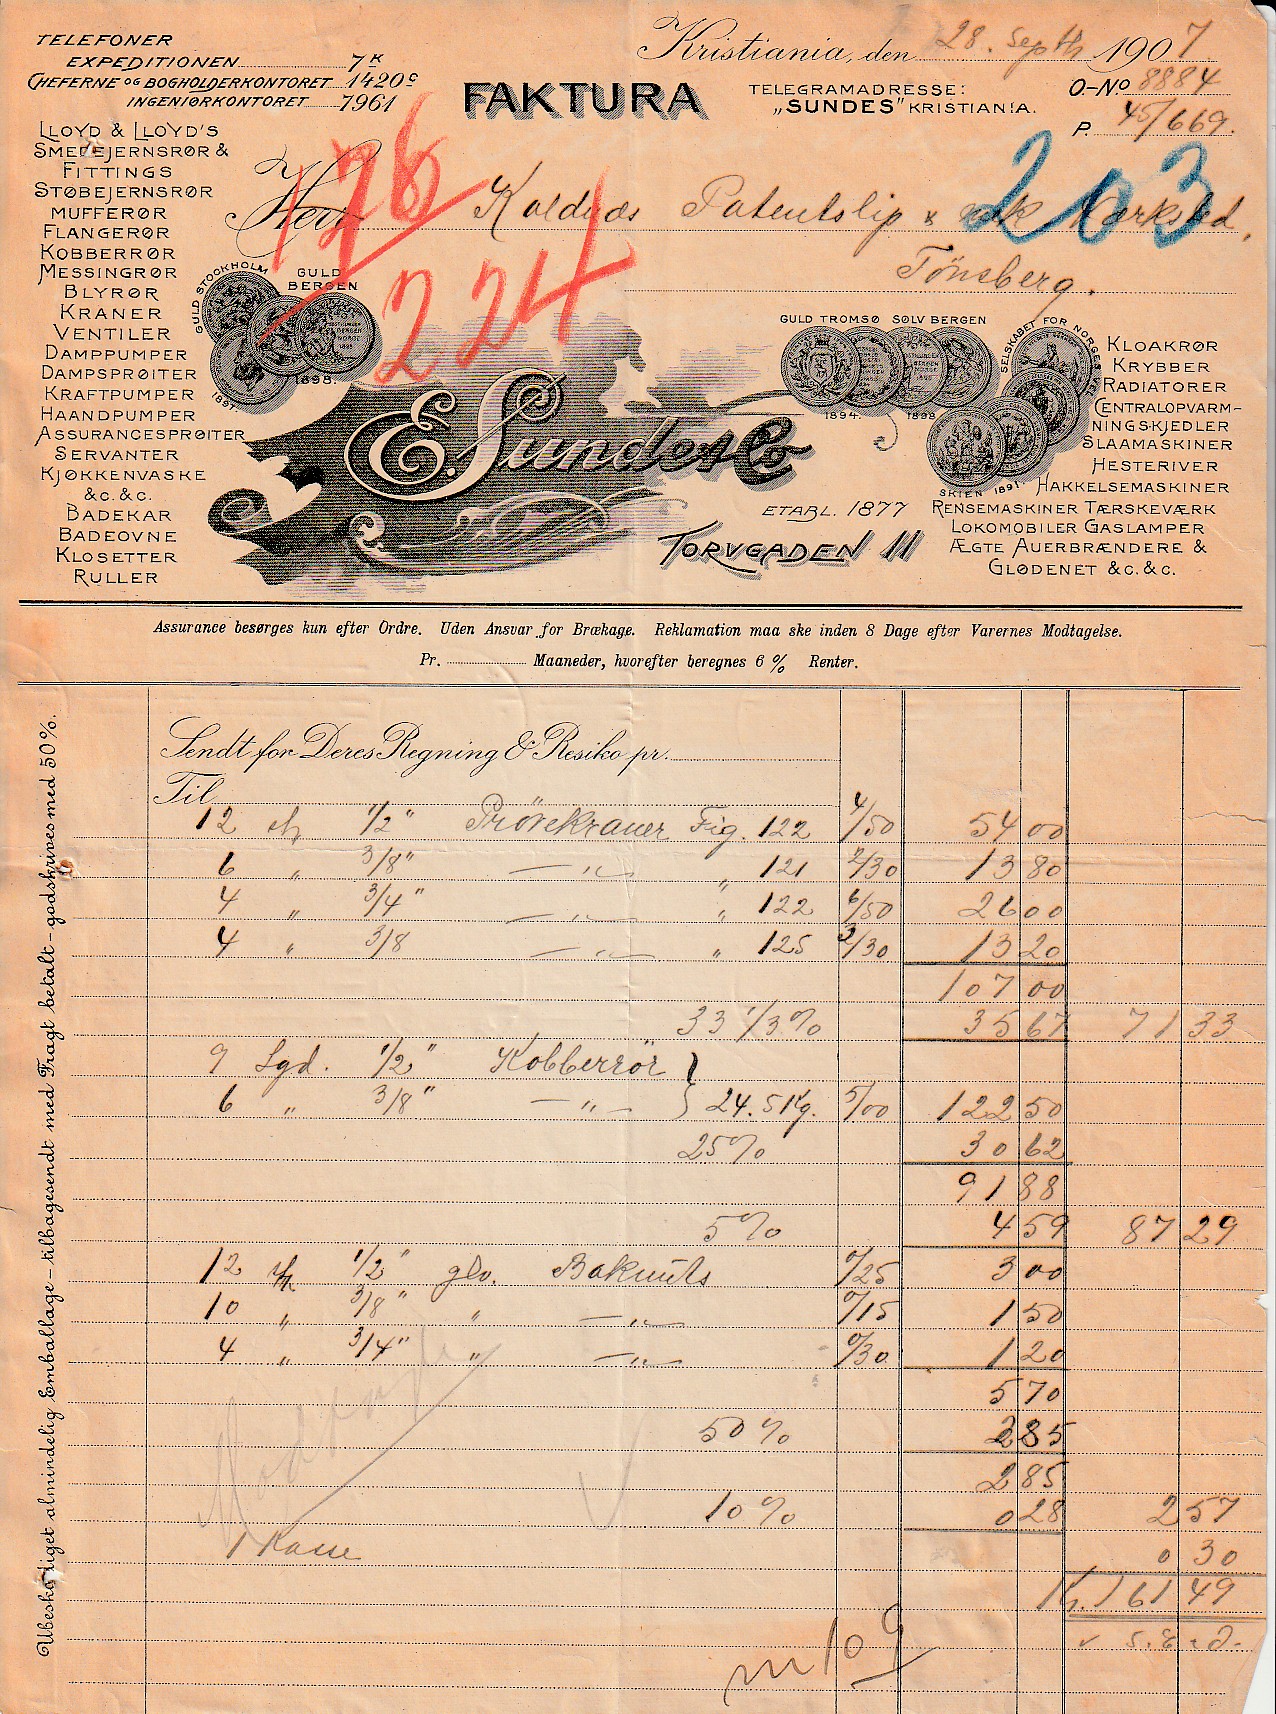 TELEFONER
EXPEDITIONEN 7K
CHEFERNE OG BOGHOLDERKONTORET 1420c
INGENIØRKONTORET 7961
Kristiania, den 28. Septb 1907
FAKTURA
TELEGRAMADRESSE:
„SUNDES" KRISTIANIA.
O-No 8884
P. 45/669.
LLOYD & LLOYD'S
SMEDEJERNSRØR &
FITTINGS
STØBEJERNSRØR
MUFFERØR
FLANGERØR
KOBBERRØR
MESSINGRØR
BLYRØR
KRANER
VENTILER
DAMPPUMPER
DAMPSPRØITER
KRAFTPUMPER
HAANDPUMPER
ASSURANCESPRØITER
SERVANTER
KJØKKENVASKE
&C. &C.
BADEKAR
BADEOVNE
KLOSETTER
RULLER
176
224
203
Herr Kaldnæs Patentslip & mek Værksted,
Tönsberg.
GULD STOCKHOLM
GULD
BERGEN
1897.
1898.
GULD TROMSØ SØLV BERGEN
1894. 1898
SELSKABET FOR NORGES
SKIEN 1891.
E. Sunde & Co
ETABL. 1877
TORVGADEN 11
KLOAKRØR
KRYBBER
RADIATORER
CENTRALOPVARM-
NINGSKJEDLER
SLAAMASKINER
HESTERIVER
HAKKELSEMASKINER
RENSEMASKINER TÆRSKEVÆRK
LOKOMOBILER GASLAMPER
ÆGTE AUERBRÆNDERE &
GLØDENET &C. &C.
Assurance besørges kun efter Ordre. Uden Ansvar for Brækage. Reklamation maa ske inden 8 Dage efter Varernes Modtagelse.
Pr. Maaneder, hvorefter beregnes 6 % Renter.
Ubeskadiget almindelig Emballage - tilbagesendt med Fragt betalt - godskrives med 50 %.
Sendt for Deres Regning & Resiko pr.
Til
12 st 1/2" Prövekraner Fig. 122 4/50 54 00
6 „ 3/8" — „ — „ 121 2/30 13 80
4 „ 3/4" — „ — „ 122 6/50 26 00
4 „ 3/8 — „ — „ 125 3/30 13 20
107 00
33 1/3 % 35 67 71 33
9 Lgd. 1/2" Kobberrör }
6 „ 3/8" — „ — } 24.5 Kg. 5/00 122 50
25% 30 62
91 88
5% 4 59 87 29
12 st 1/2" glv. Bakmuts 0/25 3 00
10 „ 3/8" „ — „ — 0/15 1 50
4 „ 3/4" „ — „ — 0/30 1 20
5 70
50 % 2 85
2 85
10 % 0 28 2 57
1 Kasse 0 30
Kr. 161 49
S. E. & O.
m 109